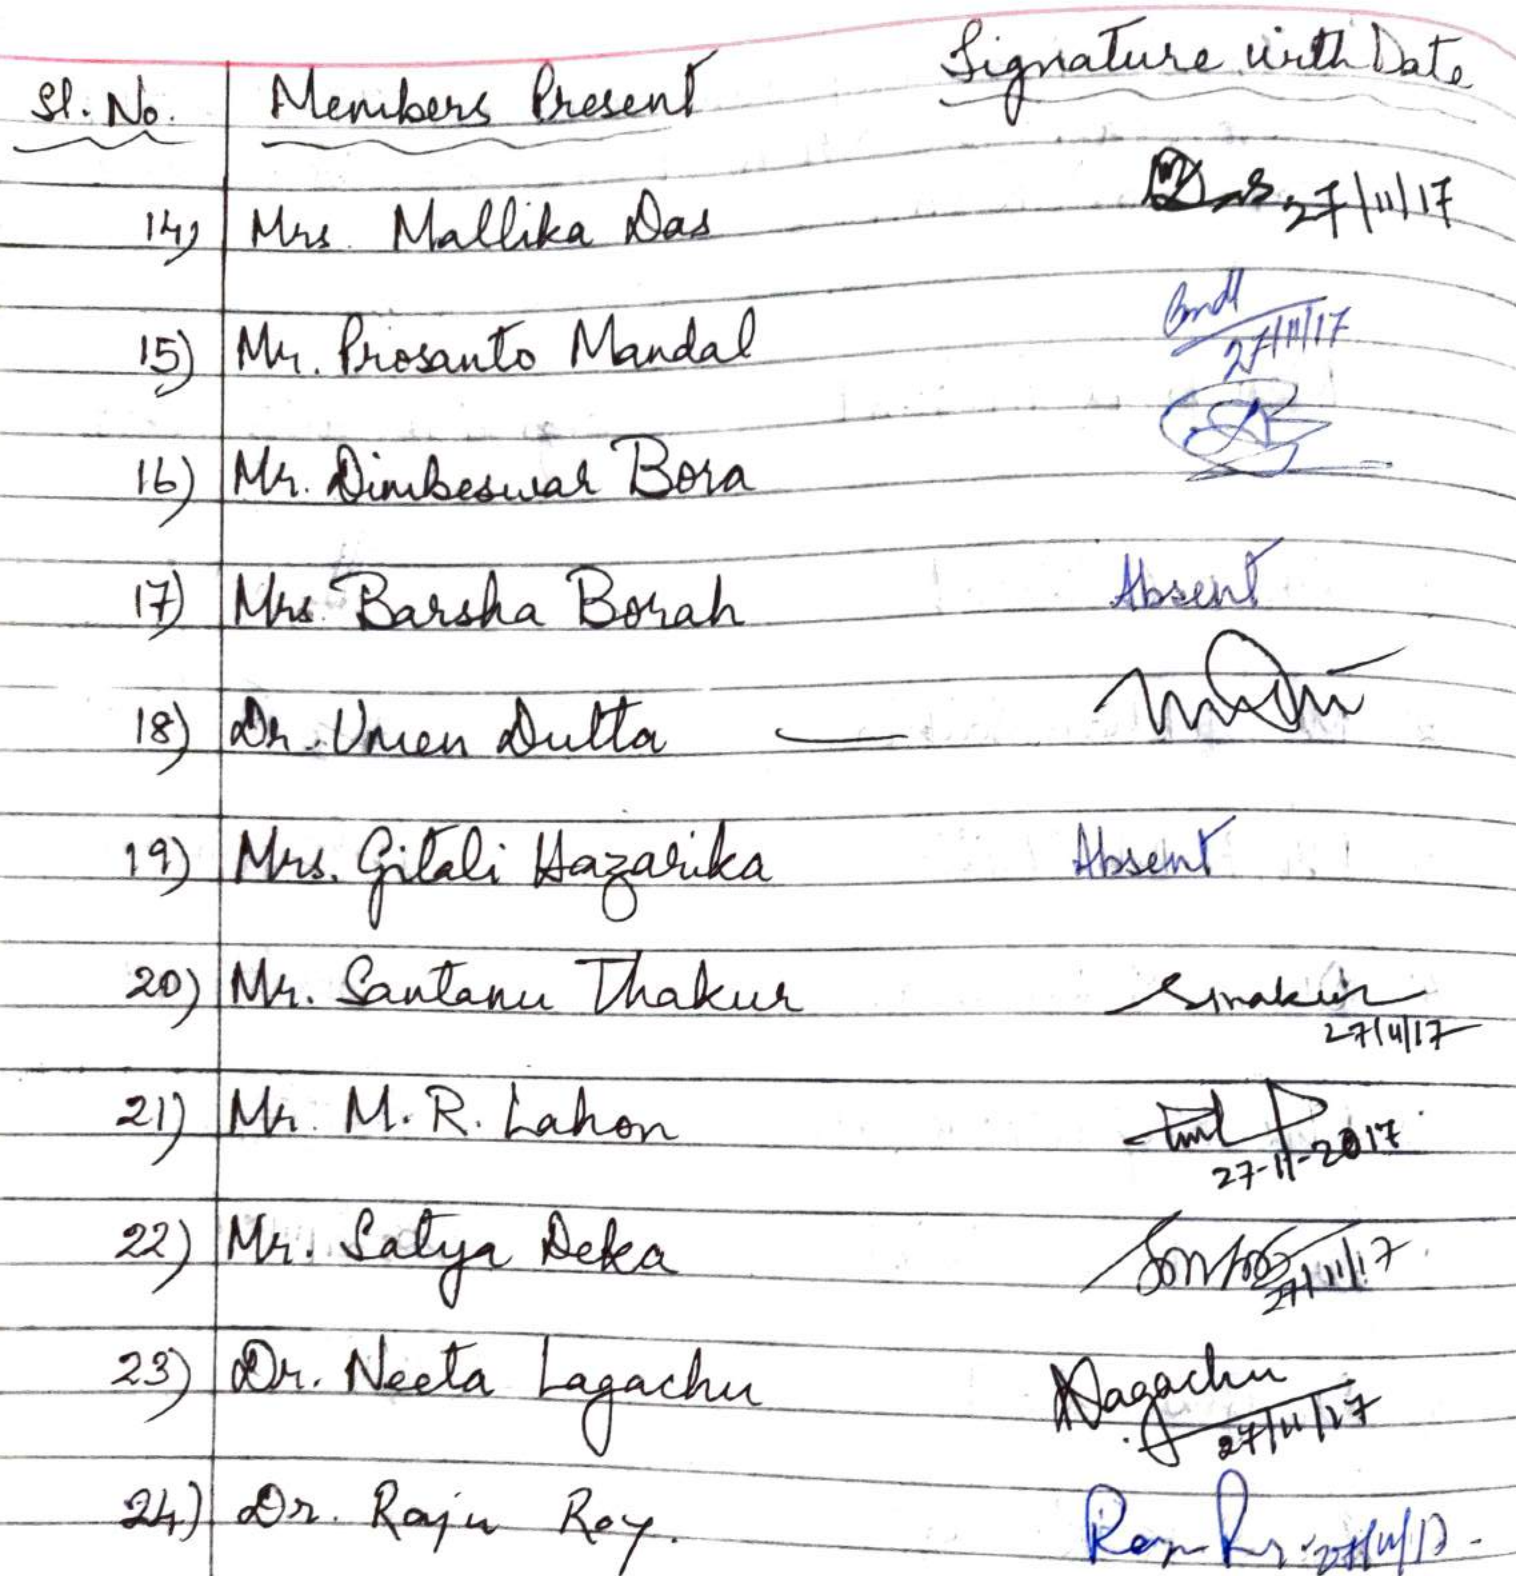 Sl. No. Members Present Signature with Date
14) Mrs. Mallika Das 27/11/17
15) Mr. Prosanto Mandal
27/11/17
16) Mr. Dimbeswar Bora
17) Mrs. Barsha Borah Absent
18) Dr. Umen Dutta
19) Mrs. Gitali Hazarika Absent
20) Mr. Santanu Thakur
27/11/17
21) Mr. M.R. Lahon
27-11-2017
22) Mr. Satya Deka
27/11/17
23) Dr. Neeta Lagachu NLagachu
27/11/17
24) Dr. Raju Roy. 27/11/17.